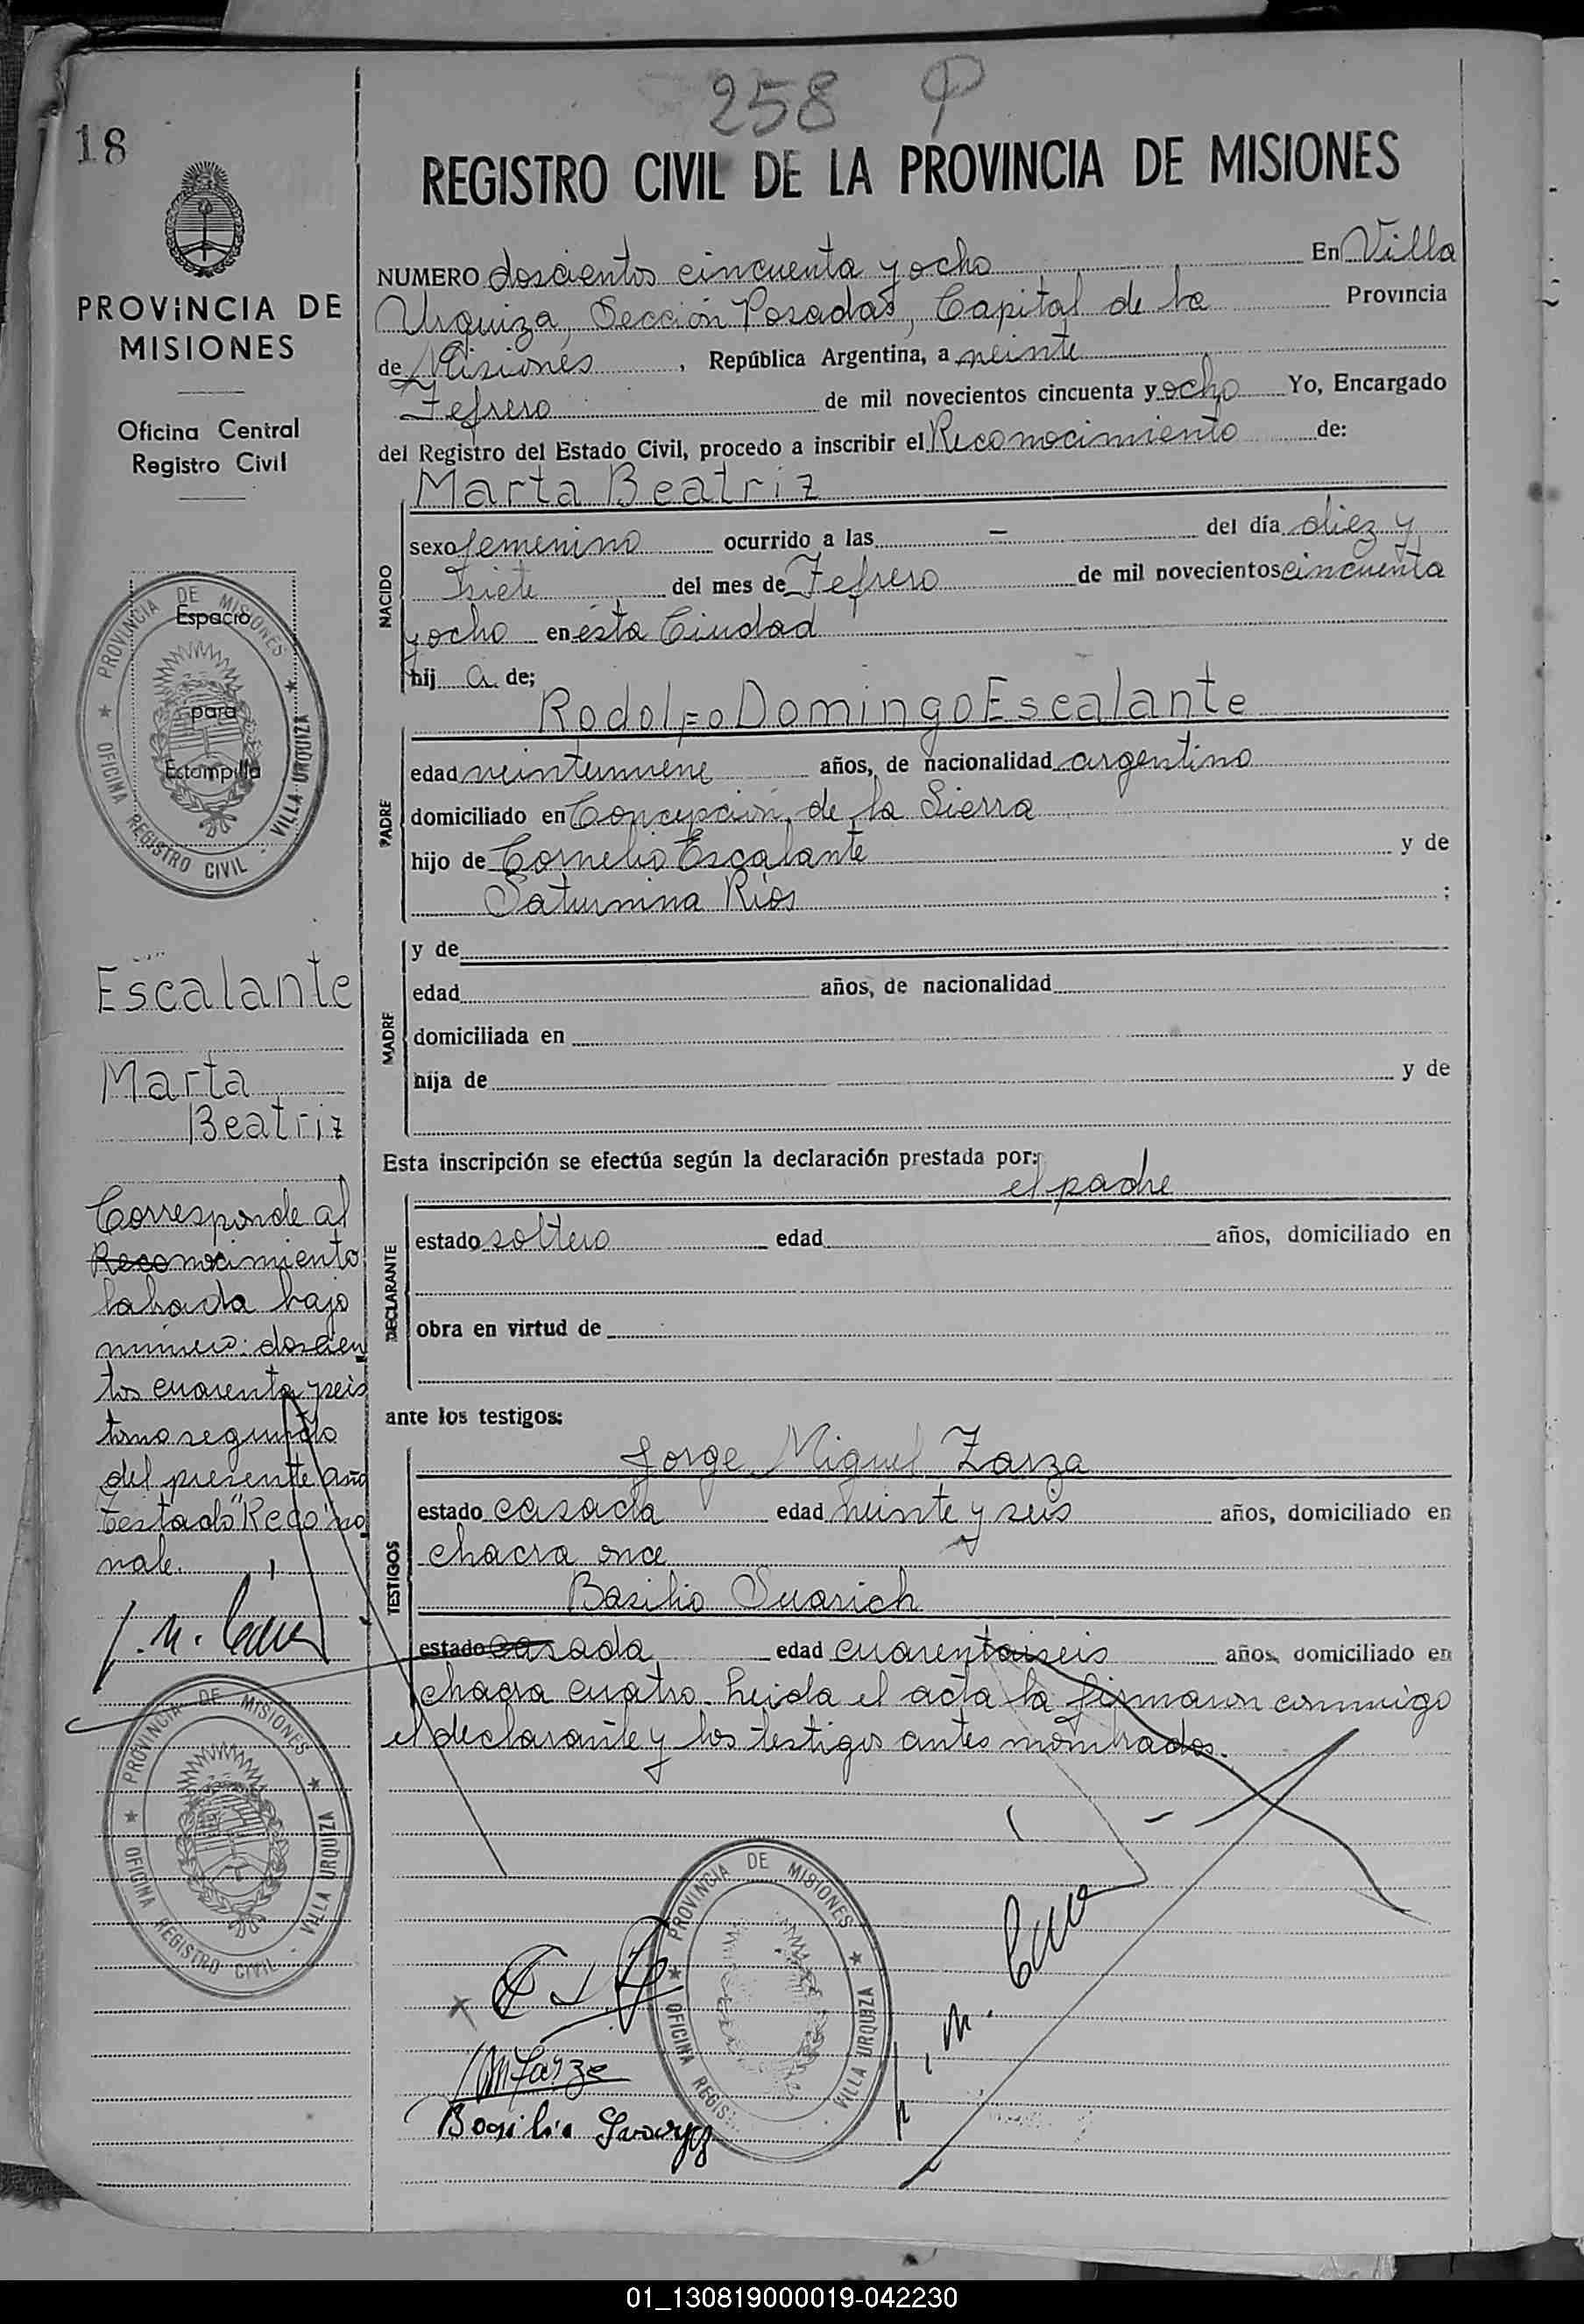 258
18
REGISTRO CIVIL DE LA PROVINCIA DE MISIONES
PROVINCIA DE
MISIONES
Oficina Central
Registro Civil
PROVINCIA DE MISIONES
OFICINA REGISTRO CIVIL - VILLA URQUIZA
Espacio
para
Estampilla
Escalante
Marta
Beatriz
Corresponde al
Reconocimiento
labrada bajo
número: doscien
tos cuarenta y seis
tomo segundo
del presente año
Testado "Reco" no
vale.
PROVINCIA DE MISIONES
OFICINA REGISTRO CIVIL - VILLA URQUIZA
NUMERO doscientos cincuenta y ocho En Villa
Urquiza, Sección Posadas, Capital de la Provincia
de Misiones, República Argentina, a veinte
Febrero de mil novecientos cincuenta y ocho Yo, Encargado
del Registro del Estado Civil, procedo a inscribir el Reconocimiento de:
Marta Beatriz
NACIDO
sexo femenino ocurrido a las - del día diez y
siete del mes de Febrero de mil novecientos cincuenta
y ocho en ésta Ciudad
hij a de;
Rodolfo Domingo Escalante
PADRE
edad veintinueve años, de nacionalidad argentino
domiciliado en Concepción de la Sierra
hijo de Cornelio Escalante y de
Saturnina Ríos ;
MADRE
y de
edad años, de nacionalidad
domiciliada en
hija de y de
Esta inscripción se efectúa según la declaración prestada por:
el padre
DECLARANTE
estado soltero edad años, domiciliado en
obra en virtud de
ante los testigos:
Jorge Miguel Zarza
TESTIGOS
estado casado edad veinte y seis años, domiciliado en
chacra once
Basilio Suarich
estado casado edad cuarentaiseis años domiciliado en
chacra cuatro. Leida el acta la firmaron conmigo
el declarante y los testigos antes nombrados.
PROVINCIA DE MISIONES
OFICINA REGIS VILLA URQUIZA
Basilio
01_130819000019-042230